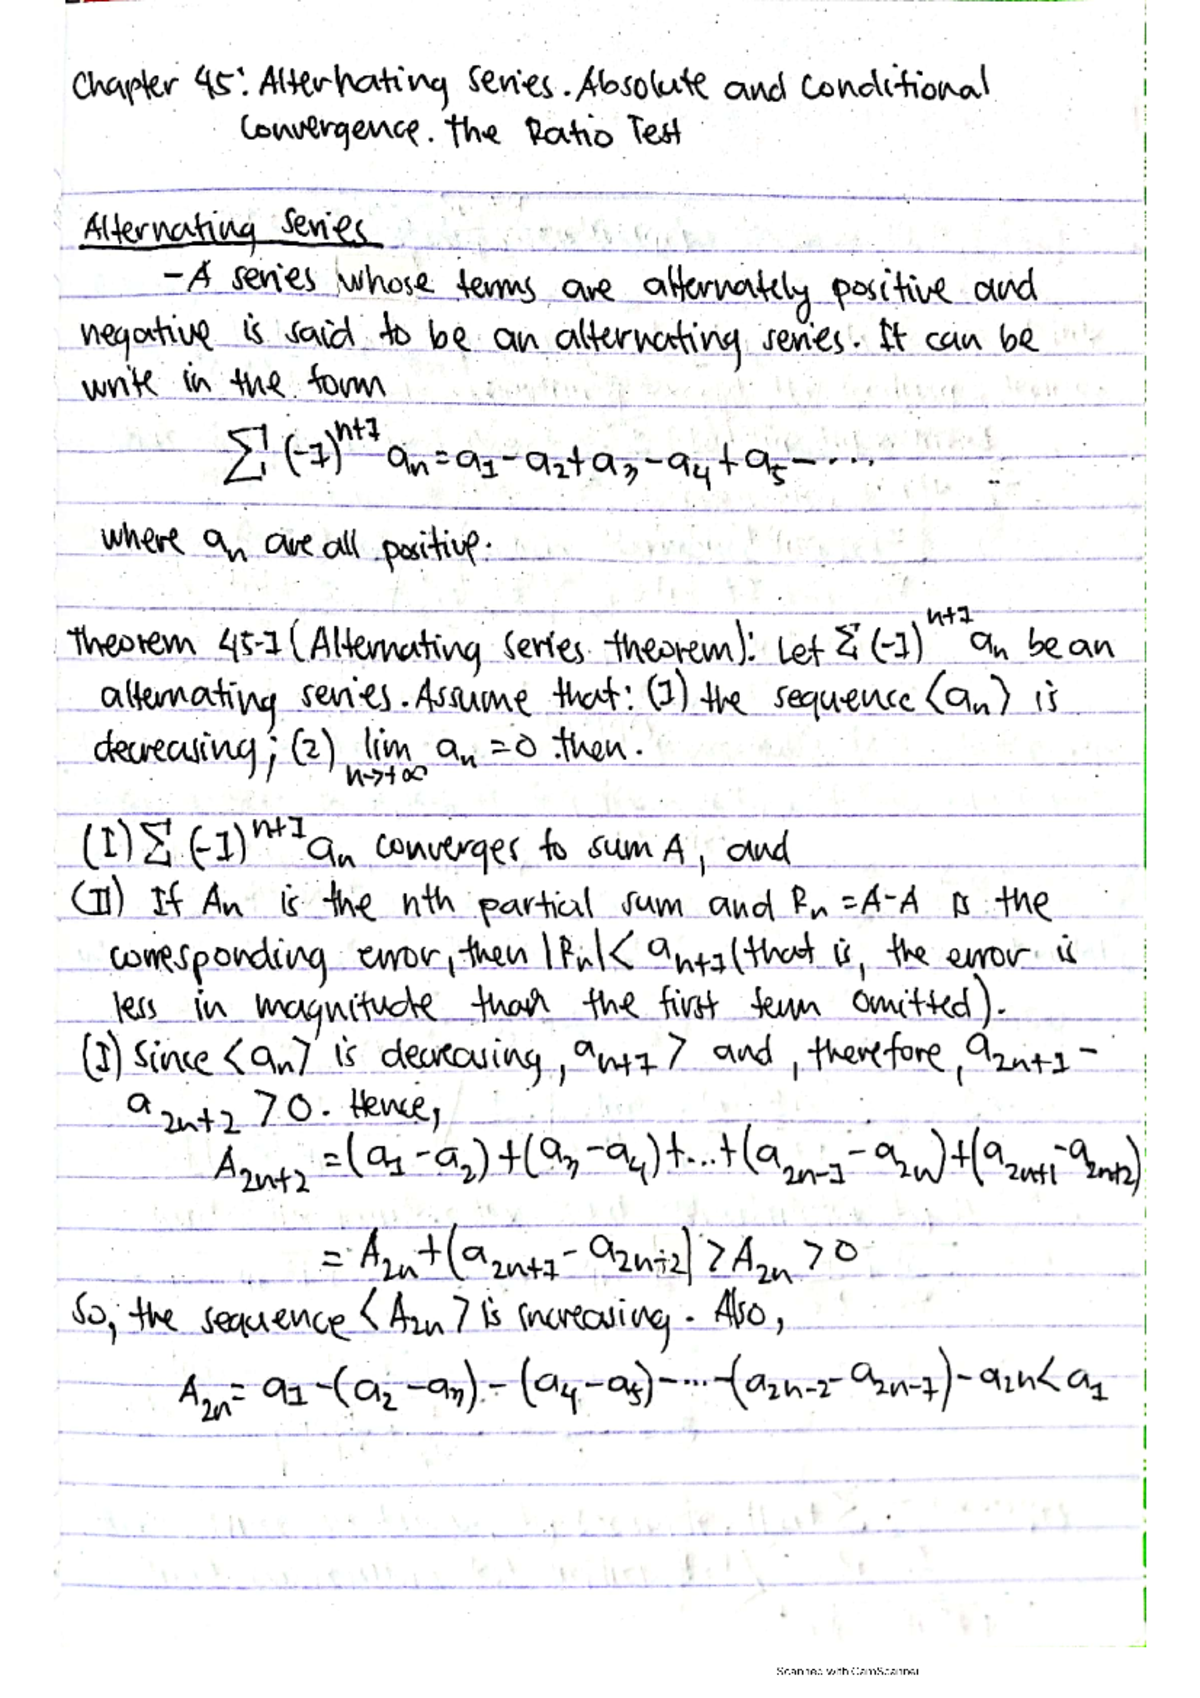 Chapter 45: Alternating Series. Absolute and Conditional
Convergence. The Ratio Test
Alternating Series
- A series whose terms are alternately positive and
negative is said to be an alternating series. It can be
write in the form
∑ (-1)^{n+1} a_n = a_1 - a_2 + a_3 - a_4 + a_5 - ...
where a_n are all positive.
Theorem 45-1 (Alternating series theorem): Let ∑ (-1)^{n+1} a_n be an
alternating series. Assume that: (1) the sequence <a_n> is
decreasing; (2) lim_{n→+∞} a_n = 0 then.
(I) ∑ (-1)^{n+1} a_n converges to sum A, and
(II) If A_n is the nth partial sum and R_n = A-A is the
corresponding error, then |R_n| < a_{n+1} (that is, the error is
less in magnitude than the first term omitted).
(I) Since <a_n> is decreasing, a_{n+1} > and, therefore, a_{2n+1} -
a_{2n+2} > 0. Hence,
A_{2n+2} = (a_1 - a_2) + (a_3 - a_4) + ... + (a_{2n-1} - a_{2n}) + (a_{2n+1} - a_{2n+2})
= A_{2n} + (a_{2n+1} - a_{2n+2}) > A_{2n} > 0
So, the sequence <A_{2n}> is increasing. Also,
A_{2n} = a_1 - (a_2 - a_3) - (a_4 - a_5) - ... - (a_{2n-2} - a_{2n-1}) - a_{2n} < a_1
Scanned with CamScanner